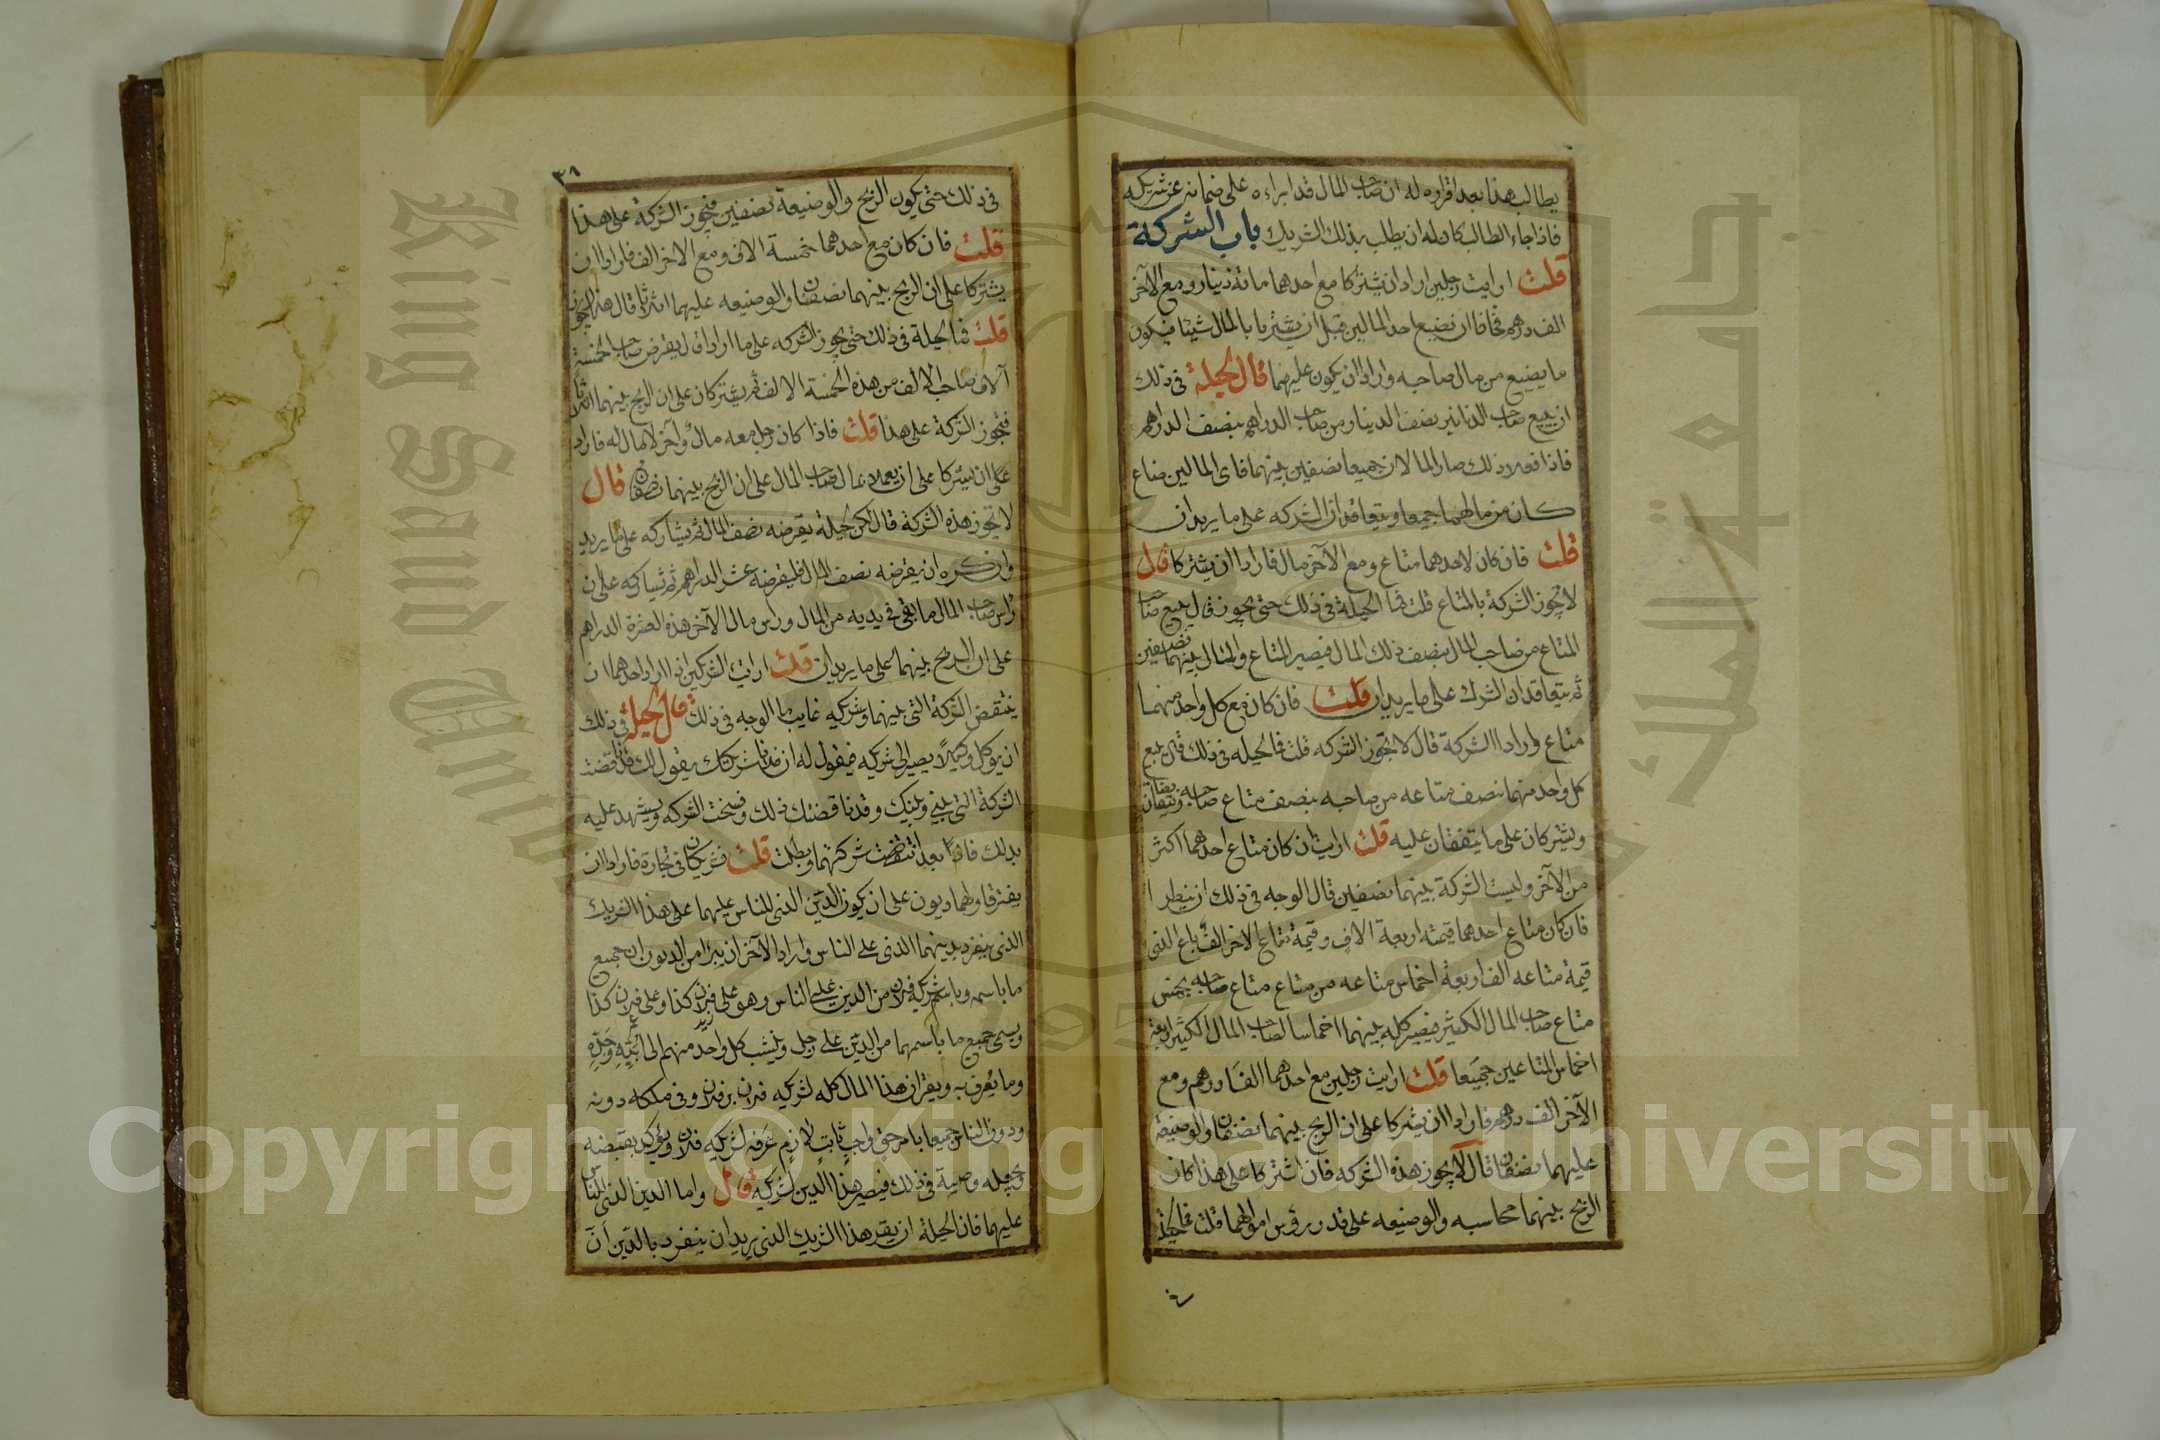 يطالب هذا بعد اقراره له ان صاحب المال قد ابراءه على ضمانه عن شريكه
فاذا جاء الطالب كان له ان يطلب بذلك الشريك باب الشركة
قلت ارايت رجلين ارادا ان يشتركا مع احدهما مائة دينار ومع الآخر
الف درهم فخافا ان يضيع احد المالين قبل ان يشتريا بالمال شيئا فيكون
ما يضيع من مال صاحبه وارادا ان يكون عليهما قال الحيلة في ذلك
ان يبيع صاحب الدنانير نصف الدينار من صاحب الدراهم بنصف الدراهم
فاذا فعلا ذلك صار المالان جميعا نصفين بينهما فاى المالين ضاع
كان من مالهما جميعا ويتعاقدان الشركه على ما يريدان
قلت فان كان لاحدهما متاع ومع الآخر مال فارادا ان يشتركا قال
لا تجوز الشركة بالمتاع قلت فما الحيلة في ذلك حتى يجوز قال يبيع صاحب
المتاع من صاحب المال بنصف ذلك المال فيصير المتاع والمال بينهما نصفين
ثم يتعاقدان الشرك على ما يريدان قلت فان كان مع كل واحد منهما
متاع وارادا الشركة قال لا تجوز الشركه قلت فما الحيله في ذلك قال يبيع
كل واحد منهما نصف متاعه من صاحبه بنصف متاع صاحبه
ويشتركان على ما يتفقان عليه قلت ارايت ان كان متاع احدهما اكثر
من الآخر وليست الشركة بينهما نصفين قال الوجه في ذلك ان ينظر ا
فان كان متاع احدهما قيمته اربعة الاف وقيمة متاع الاخر الف باع الذى
قيمة متاعه الف اربعة اخماس متاعه من متاع متاع صاحبه بخمس
متاع صاحب المال الكثير فيصير كله بينهما اخماسا لصاحب المال الكثير اربعة
اخماس المتاعين جميعا قلت ارايت رجلين مع احدهما الفا درهم ومع
الآخر الف درهم فارادا ان يشتركا على ان الربح بينهما نصفان والوضيعة
عليهما نصفان قال لا يجوز هذه الشركه فان اشتركا على هذا كان
الربح بينهما محاسبه والوضيعه على قدر رؤس اموالهما قلت فما الحيلة
في ذلك حتى يكون الربح والوضيعة نصفين فتجوز الشركة على هذا
قلت فان كان مع احدهما خمسة الاف ومع الاخر الف فارادا ان
يشتركا على ان الربح بينهما نصفان والوضيعه عليهما اثلاثا قال هذا لا يجوز
قلت فما الحيلة في ذلك حتى يجوز الشركه على ما ارادا قال يقرض صاحب الخمسة
آلاف صاحب الالف من هذه الخمسة الالف ثم يشتركان على ان الربح بينهما اثلاثا
فتجوز الشركة على هذا قلت فاذا كان رجل معه مال وآخر لا مال له فارادا
على ان يشتركا على ان يعملا بمال صاحب المال على ان الربح بينهما نصفان قال
لا تجوز هذه الشركة قال لكن الحيلة يقرضه نصف المال ثم يشاركه على ما يريد
وان كره ان يقرضه نصف المال فليقرضه عشر الدراهم ثم يشاركه على ان
راس صاحب المال ما بقى في يديه من المال وراس مال الآخر هذه العشرة الدراهم
على ان الربح بينهما على ما يريدان قلت ارايت الشريكين اذا اراد احدهما ان
ينتقض الشركة التى بينهما وشريكه غايب ما الوجه في ذلك قال الحيلة في ذلك
ان يوكل وكيلا يصير الى شريكه فيقول له ان فلانا شريكك يقول لك قد ناقضت
الشركة التى بينى وبينك وقد ناقضتك ذلك وفسخت الشركه ويشهد عليه
بذلك فاذا بعد انتقضت شركتهما وبطلت قلت شريكان في تجارة فارادا ان
يفترقا ولهما ديون على ان يكون الدين الذى للناس عليهما على هذا الشريك
الذى ينفرد بدينهما الذى على الناس واراد الآخر ان يبرا من الديون ان جميع
ما باسمه وباسم شريكه فلان من الدين على الناس وهو على فلان كذا وعلى فلان كذا
ويسمى جميع ما باسمهما من الدين على رجل وينسب كل واحد منهم الى ابيه وجده
وما يعرف به ويقران هذا المال كله لشريكه فلان بن فلان وفى ملكه دونه
ودون الناس جميعا بامر حق واجب ثابت لازم عرفه لشريكه فلان ويوكله بقبضه
ويجعله وصيه في ذلك فيصير هذا الدين لشريكه قال واما الدين الذى للناس
عليهما فان الحيلة ان يقر هذا الشريك الذى يريد ان ينفرد بالدين ان
Copyright © King Saud University
King Saud University
جامعة الملك
195